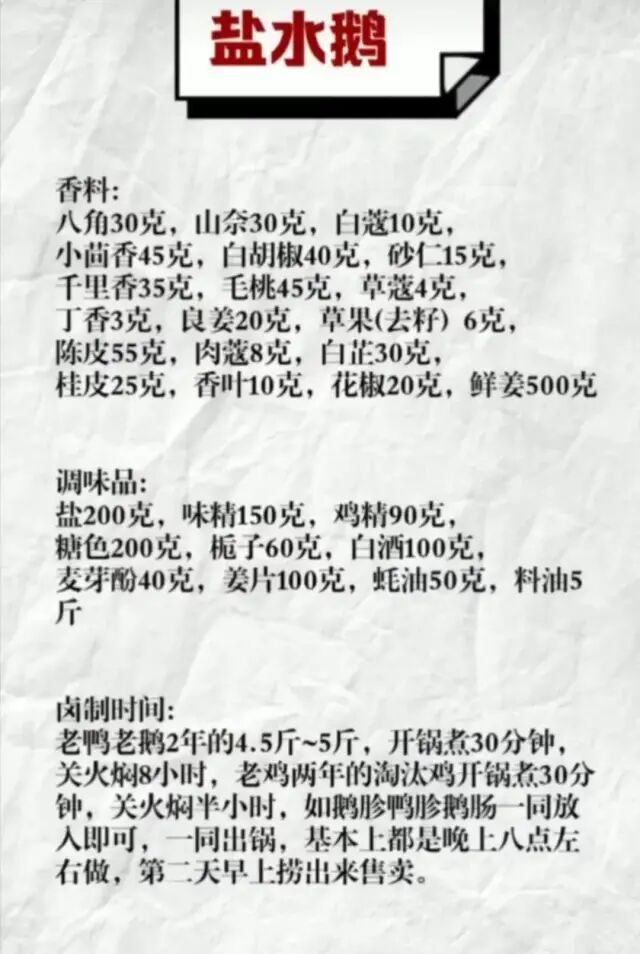 盐水鹅
香料：
八角30克，山奈30克，白蔻10克，
小茴香45克，白胡椒40克，砂仁15克，
千里香35克，毛桃45克，草蔻4克，
丁香3克，良姜20克，草果(去籽) 6克，
陈皮55克，肉蔻8克，白芷30克，
桂皮25克，香叶10克，花椒20克，鲜姜500克
调味品：
盐200克，味精150克，鸡精90克，
糖色200克，栀子60克，白酒100克，
麦芽酚40克，姜片100克，蚝油50克，料油5
斤
卤制时间：
老鸭老鹅2年的4.5斤~5斤，开锅煮30分钟，
关火焖8小时，老鸡两年的淘汰鸡开锅煮30分
钟，关火焖半小时，如鹅胗鸭胗鹅肠一同放
入即可，一同出锅，基本上都是晚上八点左
右做，第二天早上捞出来售卖。